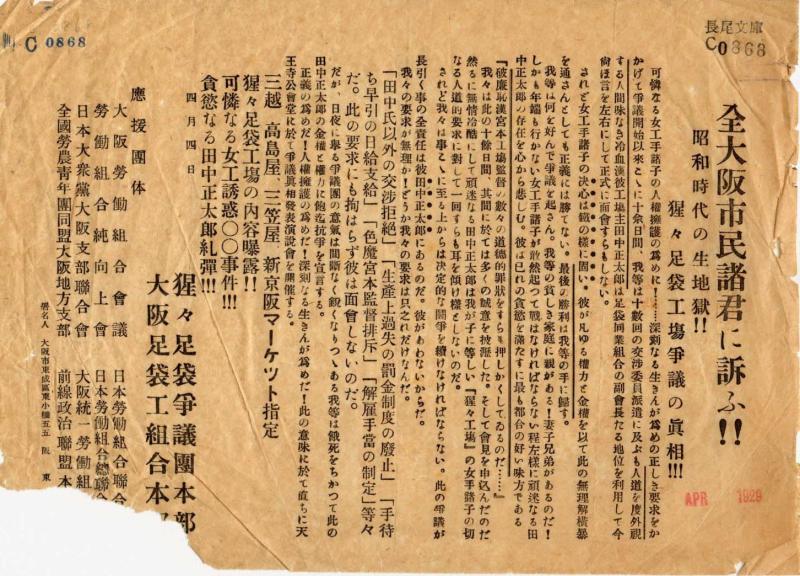 C 0868
長尾文庫
C0868
全大阪市民諸君に訴ふ!!
昭和時代の生地獄!!
猩々足袋工場爭議の眞相!!!
可憐なる女工手諸子の人權擁護の爲めに!……深刻なる生きんが爲めの正しき要求をか
かげて爭議開始以來こゝに十余日間、我等は十數回の交渉委員派遣に及ぶも人道を度外視
する人間味なき冷血漢彼工場主田中正太郎は足袋同業組合の副會長たる地位を利用して今
尚ほ言を左右にして正式に面會すらもしない。
されど女工手諸子の決心は鐵の樣に固い。彼が凡ゆる權力と金權を以て此の無理解橫暴
を通さんとしても正義には勝てない。最後の勝利は我等の手に歸す。
我等は何を好んで爭議を起さん。我等の貧しき家庭に親がある!妻子兄弟があるのだ!
しかも年端も行かない女工手諸子が敢然起つて戰はなければならない程左樣に頑迷なる田
中正太郎の存在を心から悲しむ。彼は已れの貪慾を滿たすに最も都合の好い味方である
『破廉恥漢宮本工場監督の數々の道德的罪狀をすらも押しかくしてゐるのだ……』
我々は此の十餘日間、其間に於ては多くの誠意を披瀝した。そして會見を申込んだのだ
然るに無情冷酷にして頑迷なる田中正太郎は我が子に等しい『猩々工場』の女手諸子の切
なる人道的要求に對して一回すらも耳を傾け樣としないのだ。
されど我々は事こゝに至る上からは決定的な鬪爭を續けなければならない。此の爭議が
長引く事の全責任は彼田中正太郎にあるのだ。彼があわないからだ。
我々の要求が無理か!どうか我々の要求は只之れだけなんだ。
「田中氏以外の交渉拒絕」「生產上過失の罰金制度の廢止」「手待
ち早引の日給支給」「色魔宮本監督排斥」「解雇手當の制定」等々
だ。此の要求にも拘はらず彼は面會しないのだ。
だが、日夜に擧る爭議團の意氣は間斷なく銳くなりつゝある我等は餓死をちかつて此の
田中正太郎の金權と權力に飽迄抗爭を宣言する。
正義の爲めだ!人權擁護の爲めだ!深刻なる生きんが爲めだ!此の意味に於て直ちに天
王寺公會堂に於て爭議眞相發表演說會を開催する。
三越 高島屋、三笠屋、新京阪マーケット指定
猩々足袋工場の內容曝露!!
可憐なる女工誘惑〇〇事件!!!
貪慾なる田中正太郎糺彈!!!
四月四日
猩々足袋爭議團本部
大阪足袋工組合本
應援團体
大阪勞働組合會議
勞働組合純向上會
日本大衆黨大阪支部聯合會
全國勞農青年團同盟大阪地方支部
日本勞働組合聯合
日本勞働組合總聯合
大阪統一勞働組
前線政治聯盟本
署名人 大阪市東成區東小橋五五 阪 東
APR 1929